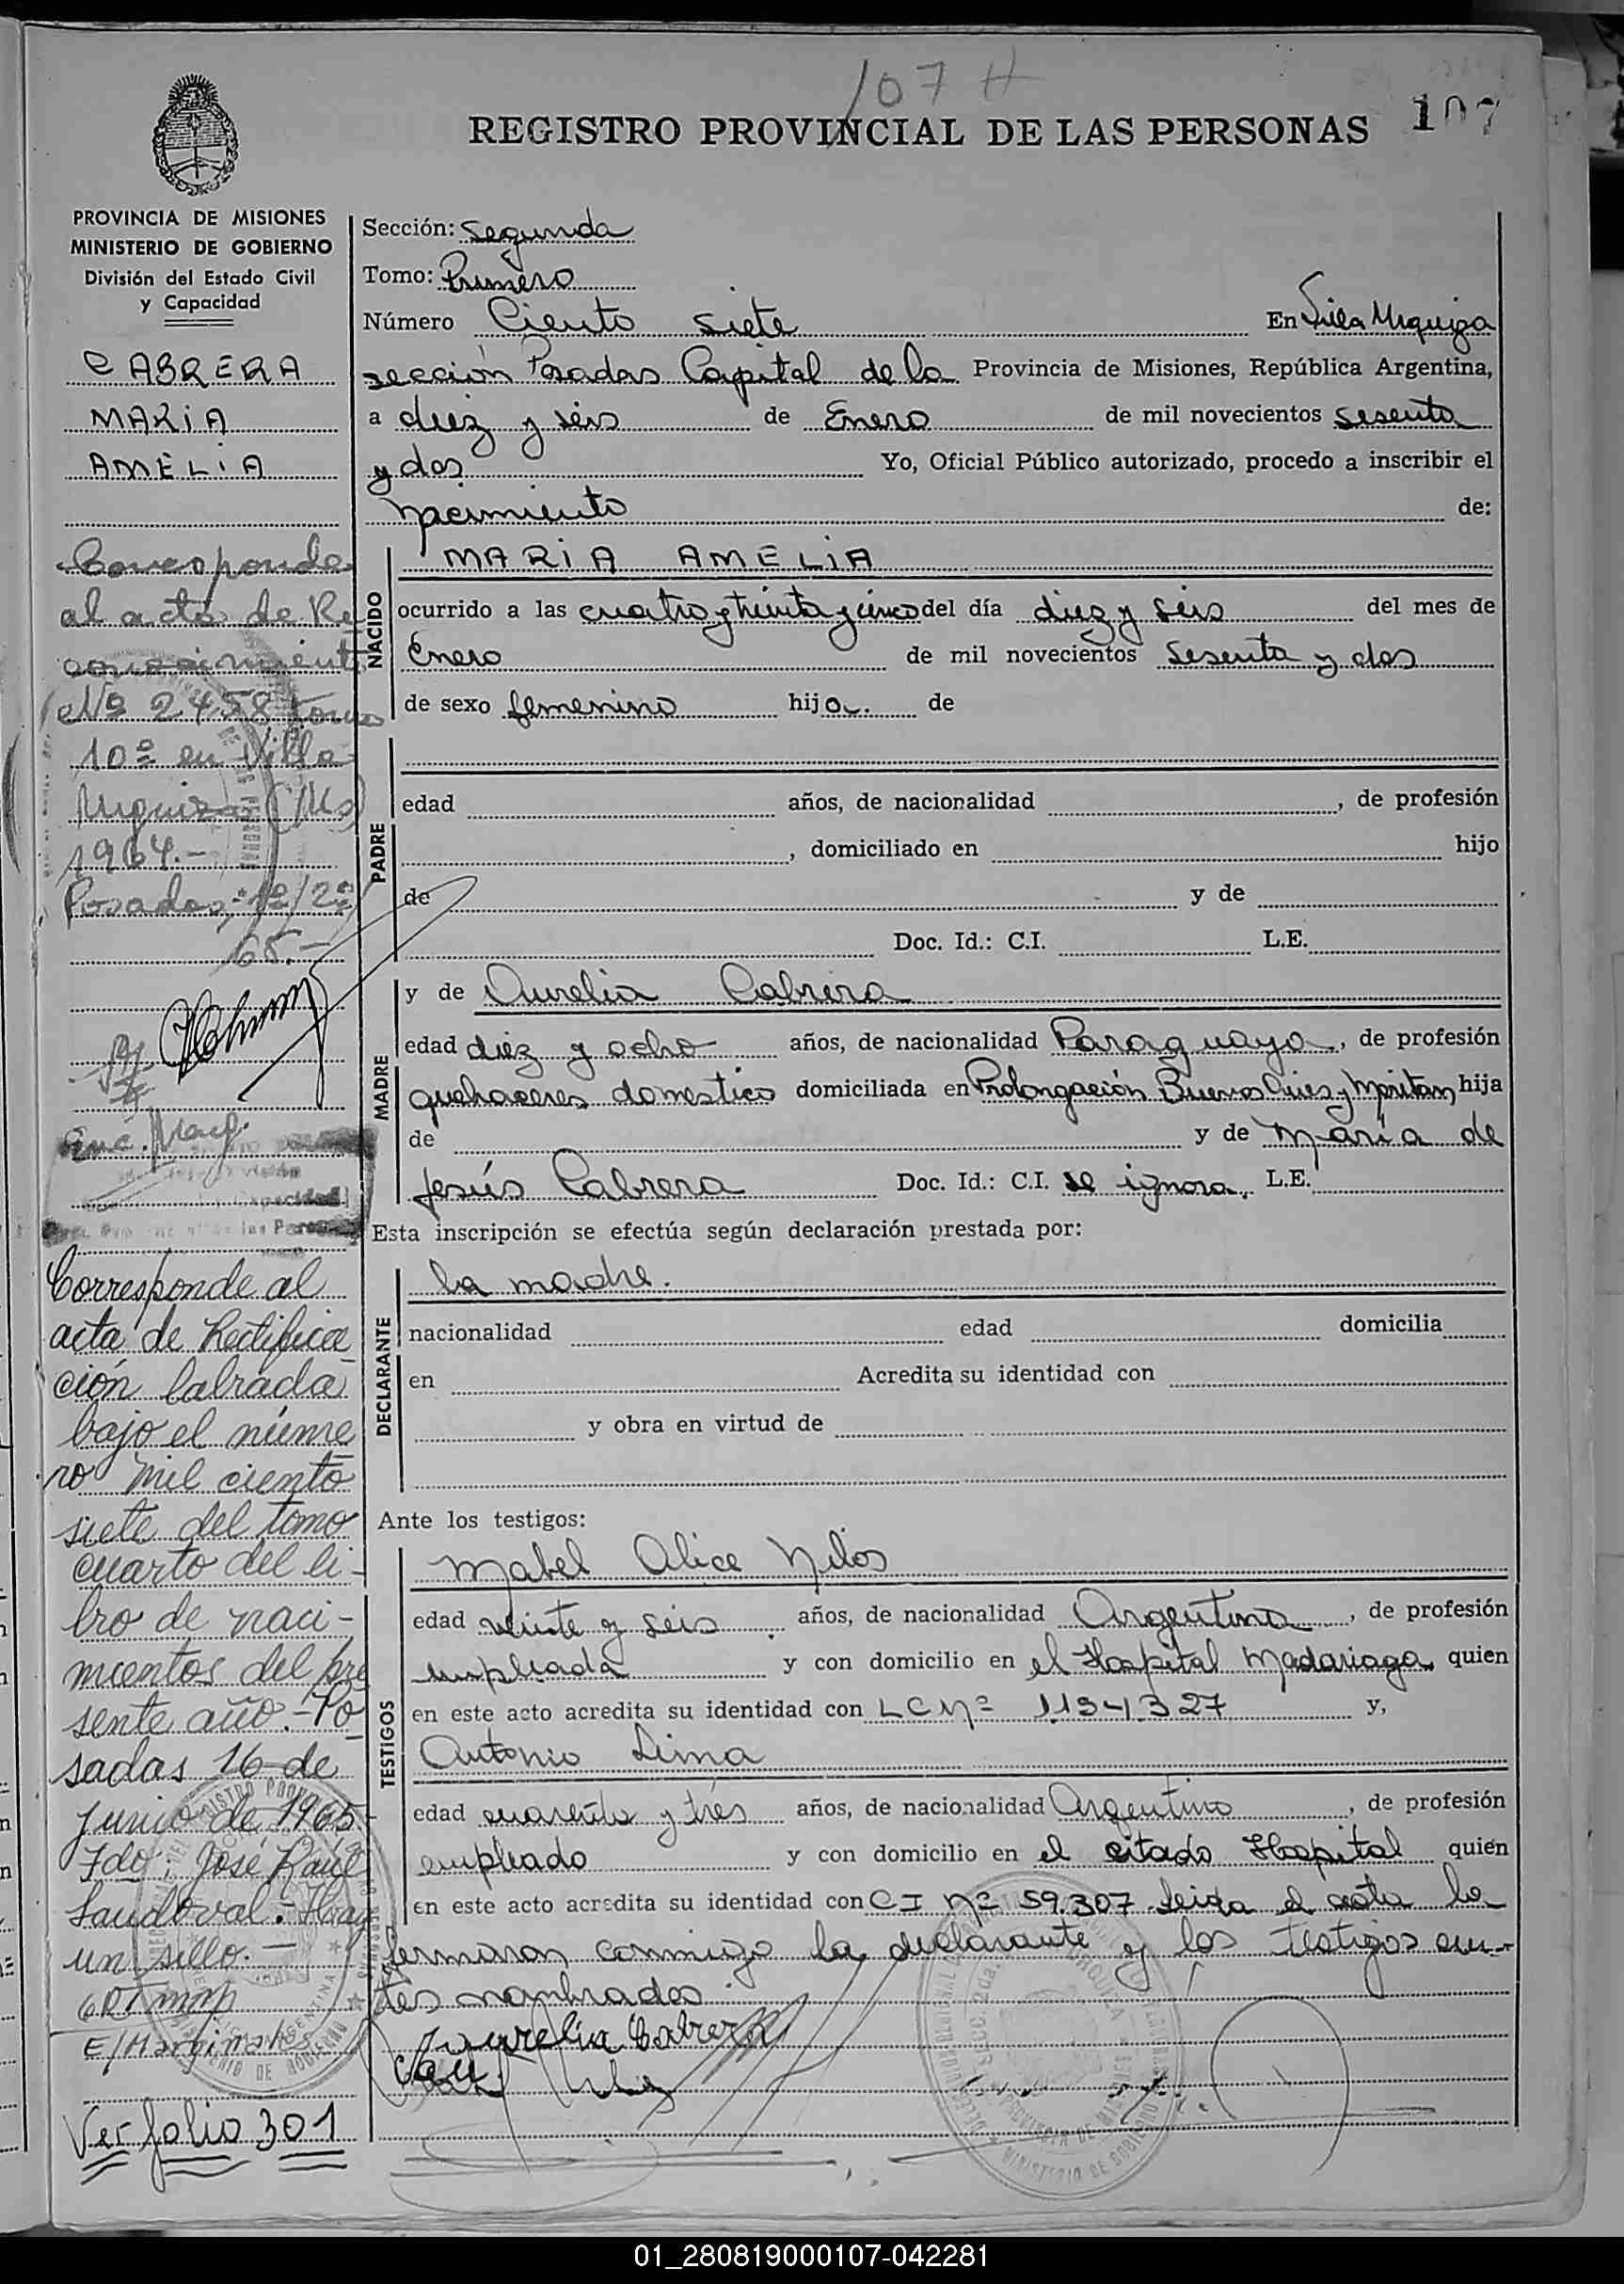 107 H
REGISTRO PROVINCIAL DE LAS PERSONAS
107
PROVINCIA DE MISIONES
MINISTERIO DE GOBIERNO
División del Estado Civil
y Capacidad
CABRERA
MARIA
AMELIA
Corresponde
al acta de Re
conocimient
Nº 2458 tomo
10º en Villa
Urquiza (Ms)
1964.-
Posadas, 1º/2º
65.-
Enc. Marg.
Corresponde al
acta de Rectifica
ción labrada
bajo el núme
ro mil ciento
siete del tomo
cuarto del li-
bro de naci-
mientos del pre
sente año.- Po
sadas 16 de
junio de 1965
Fdo: José Raúl
Sandoval.- Hay
un sello.-
E/Marginales
Ver folio 301
Sección: Segunda
Tomo: Primero
Número Ciento siete En Villa Urquiza
sección Posadas Capital de la Provincia de Misiones, República Argentina,
a diez y seis de Enero de mil novecientos sesenta
y dos Yo, Oficial Público autorizado, procedo a inscribir el
nacimiento de:
NACIDO
MARIA AMELIA
ocurrido a las cuatro y treinta y cinco del día diez y seis del mes de
Enero de mil novecientos sesenta y dos
de sexo femenino hija. de
PADRE
edad años, de nacionalidad , de profesión
, domiciliado en hijo
de y de
Doc. Id.: C.I. L.E.
MADRE
y de Aurelia Cabrera
edad diez y ocho años, de nacionalidad Paraguaya, de profesión
quehaceres domestico domiciliada en Prolongación Buenos Aires y hija
de y de María de
Jesús Cabrera Doc. Id.: C.I. se ignora, L.E.
Esta inscripción se efectúa según declaración prestada por:
DECLARANTE
la madre.
nacionalidad edad domicilia
en Acredita su identidad con
y obra en virtud de
Ante los testigos:
TESTIGOS
Mabel Alice
edad veinte y seis años, de nacionalidad Argentina, de profesión
empleada y con domicilio en el Hospital Madariaga quien
en este acto acredita su identidad con LC Nº y,
Antonio Lima
edad cuarenta y tres años, de nacionalidad Argentino, de profesión
empleado y con domicilio en el citado Hospital quien
en este acto acredita su identidad con CI Nº 59.307. Leida el acta la
firmaron conmigo la declarante y los testigos an-
tes nombrados
Aurelia Cabrera
01_280819000107-042281